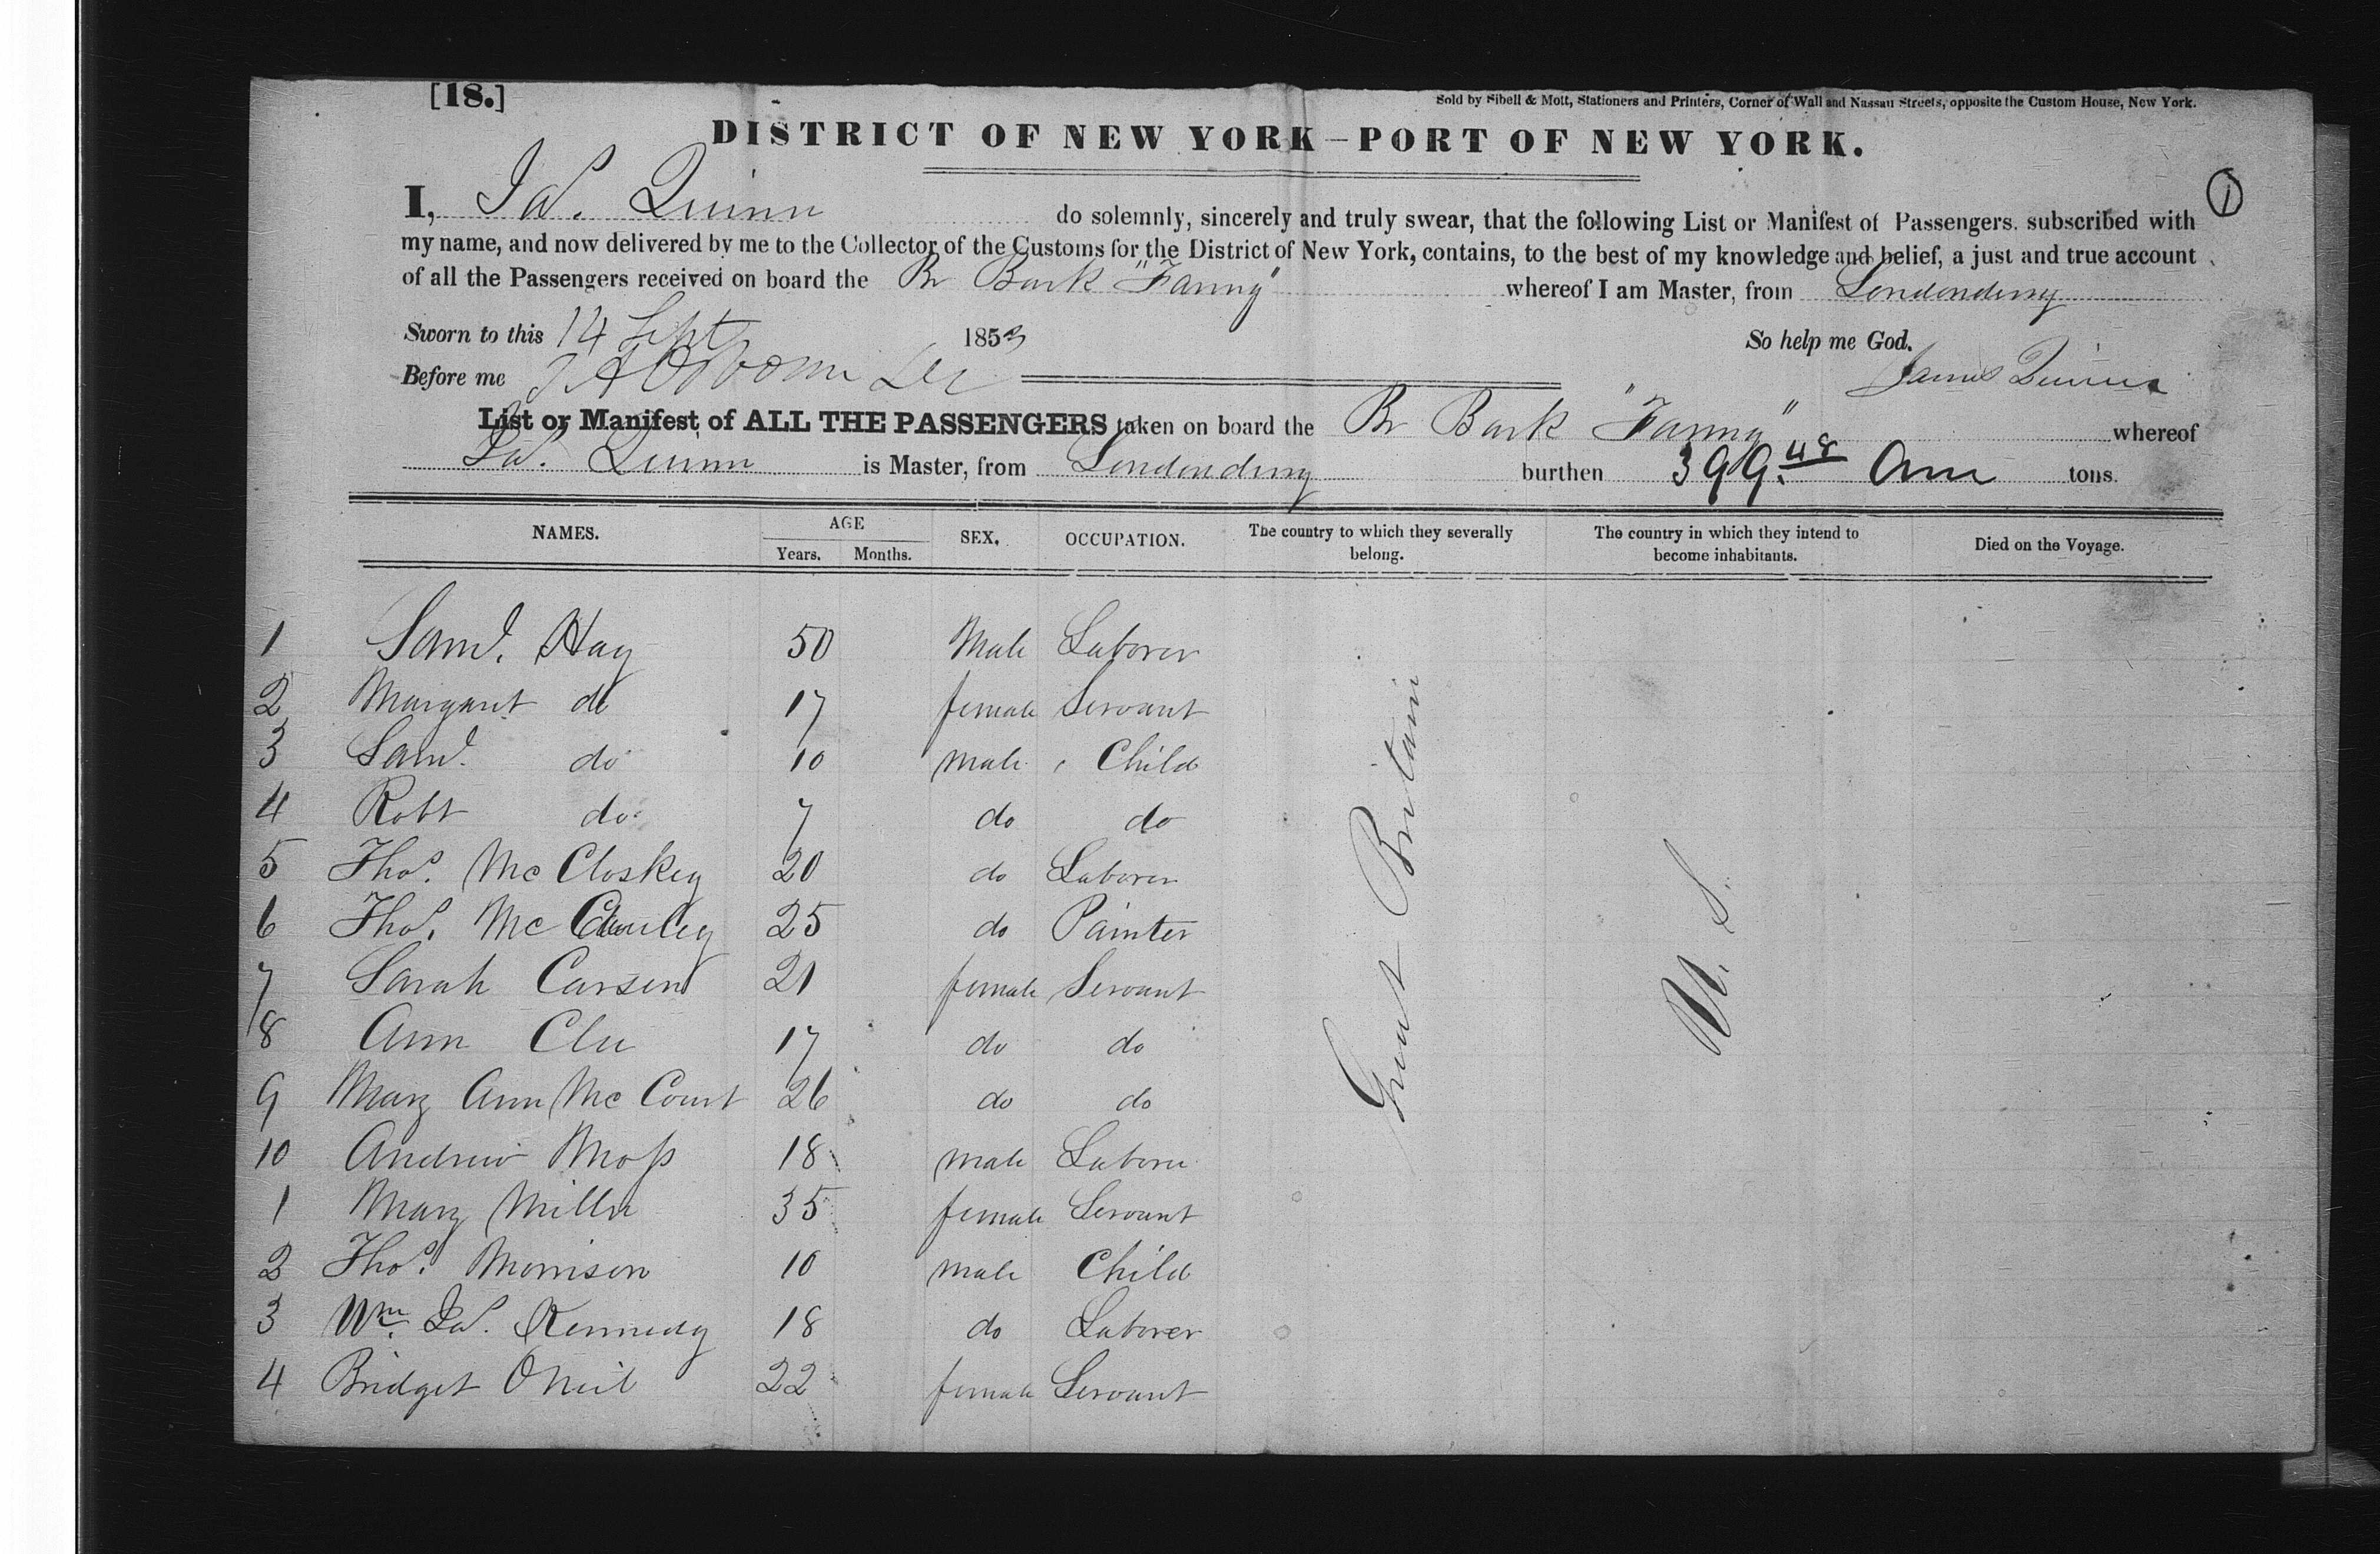 [18.]
Sold by Sibell & Mott, Stationers and Printers, Corner of Wall and Nassau Streets, opposite the Custom House, New York.
DISTRICT OF NEW YORK—PORT OF NEW YORK.
1
I, Jas. Quinn do solemnly, sincerely and truly swear, that the following List or Manifest of Passengers, subscribed with
my name, and now delivered by me to the Collector of the Customs for the District of New York, contains, to the best of my knowledge and belief, a just and true account
of all the Passengers received on board the Br Bark "Fanny" whereof I am Master, from Londonderry
Sworn to this 14 Sept 1853 So help me God.
Before me James Quinn
List or Manifest of ALL THE PASSENGERS taken on board the Br Bark "Fanny" whereof
Jas. Quinn is Master, from Londonderry burthen 399.48 Am tons.
NAMES. AGE Years. Months. SEX. OCCUPATION. The country to which they severally belong. The country in which they intend to become inhabitants. Died on the Voyage.
1 Saml. Hay 50 Male Laborer
2 Margaret do 17 female Servant
3 Saml. do 10 male Child
4 Robt do 7 do do
5 Thos. McCloskey 20 do Laborer
6 Thos. Mc 25 do Painter
7 Sarah Carson 21 female Servant
8 Ann 17 do do
9 Mary Ann McCourt 26 do do
10 Andrew Moss 18 male Laborer
1 Mary Miller 35 female Servant
2 Thos. Morrison 10 male Child
3 Wm. Jas. Kennedy 18 do Laborer
4 Bridget ONeil 22 female Servant
Great Britain
U. S.